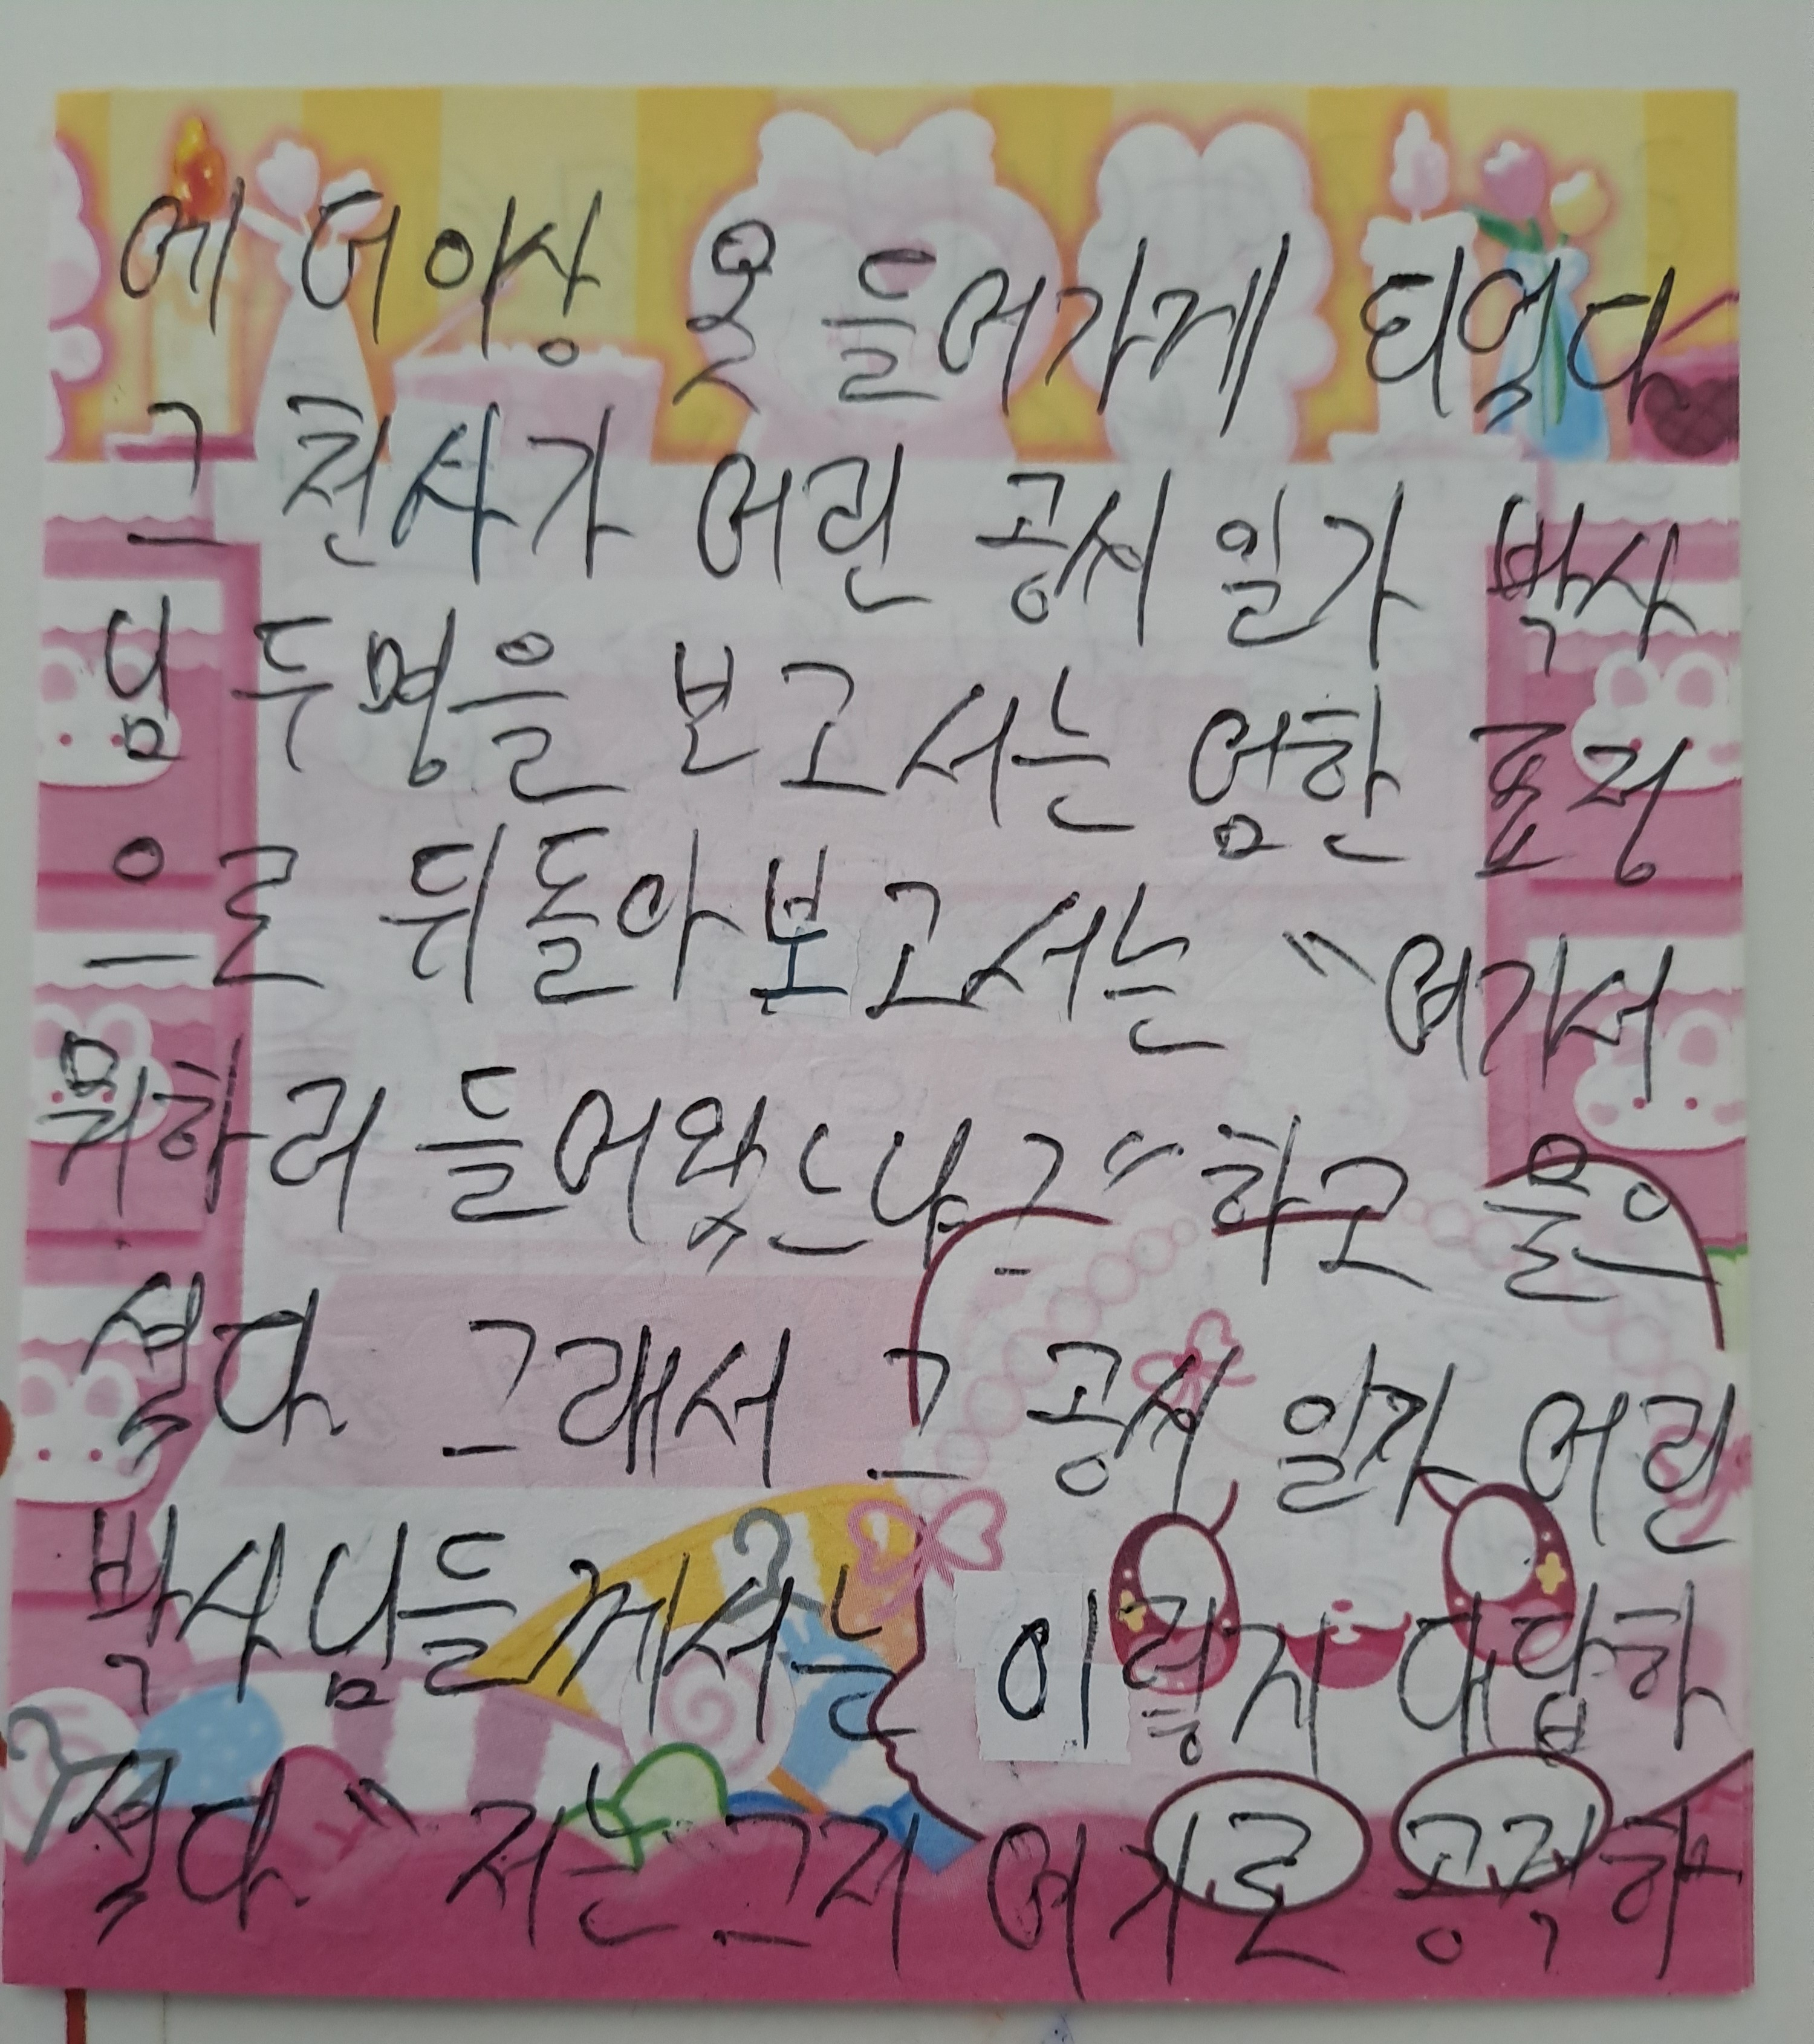 에 더이상 못 들어가게 되었다
그 천사가 어린 공씨 일가 박사
님 두명을 보고서는 엄한 표정
으로 뒤돌아보고서는 "여기서
뭐하러 들어왔느냐고" 하고 물으
셨다 그래서 그 공씨 일가 어린
박사님들께서는 이렇게 대답하
셨다 " 저는 그저 여기로 공격하